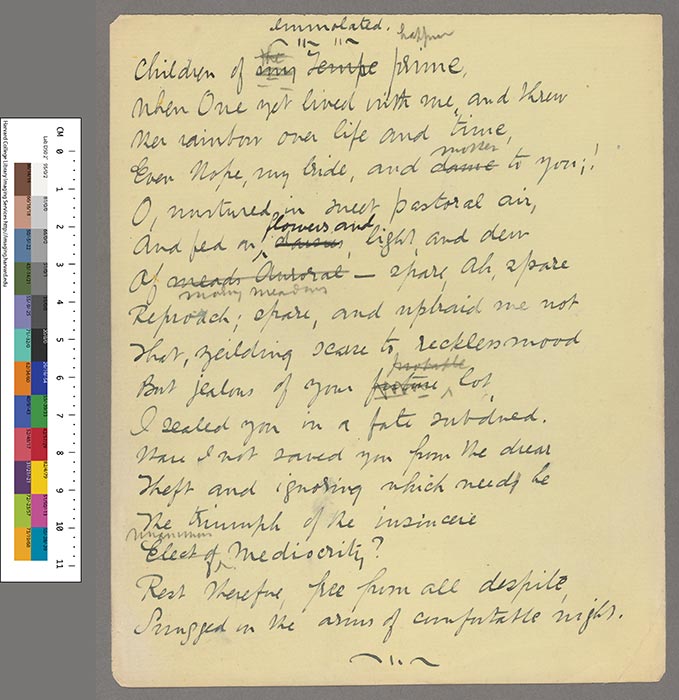 Immolated.
happier
the
Children of my Tempe prime,
When One yet lived with me, and threw
Her rainbow over life and time,
mother
Even Hope, my bride, and dame to you;!
O, nurtured in sweet pastoral air,
flowers and
And fed on daisies, light, and dew
Of meads Auroral — spare, Ah, spare
many meadows
Reproach; spare, and upbraid me not
That, yeilding scarse to reckless mood
probable
But jealous of your future lot,
I sealed you in a fate subdued.
Have I not saved you from the drear
Theft and ignoring which needs be
The triumph of the insincere
unanimous
Elect of Mediocrity?
Rest therefore, free from all despite,
Snugged in the arms of comfortable night.
CM 0 1 2 3 4 5 6 7 8 9 10 11
Harvard College Library Imaging Services http://imaging.harvard.edu